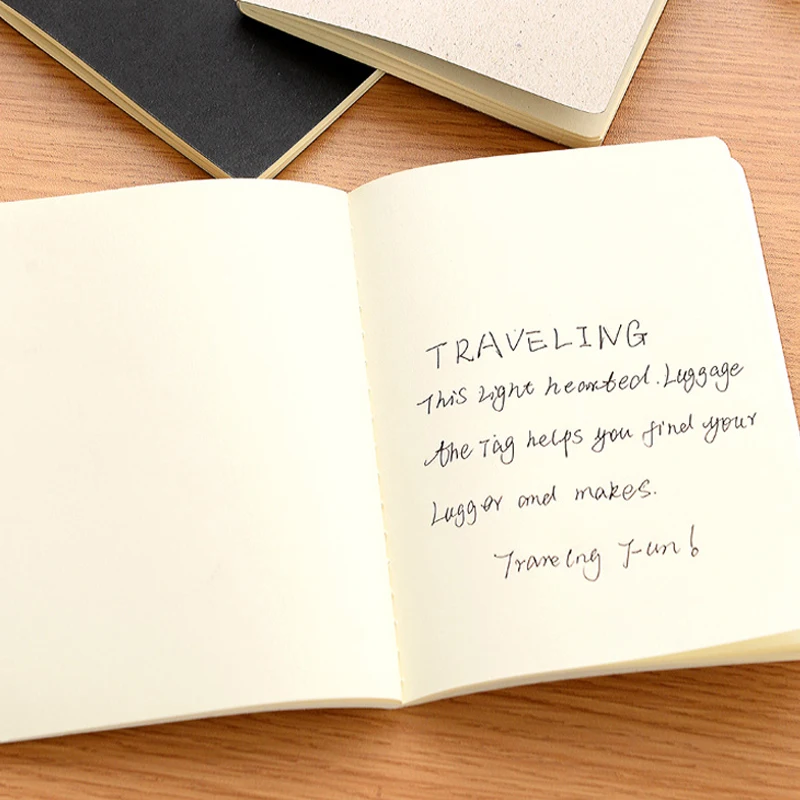 TRAVELING
This Light hearted. Luggage
the Tag helps you find your
Lugger and makes.
Traveling Fun!